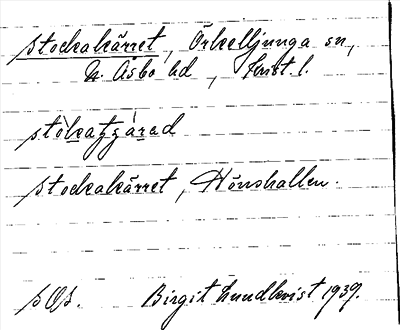 Stockakärret, Örkelljunga sn,
N. Åsbo hd, Krist. l.
Stockakärret, Hönshallen.
sOs. Birgit Lundkvist 1939.